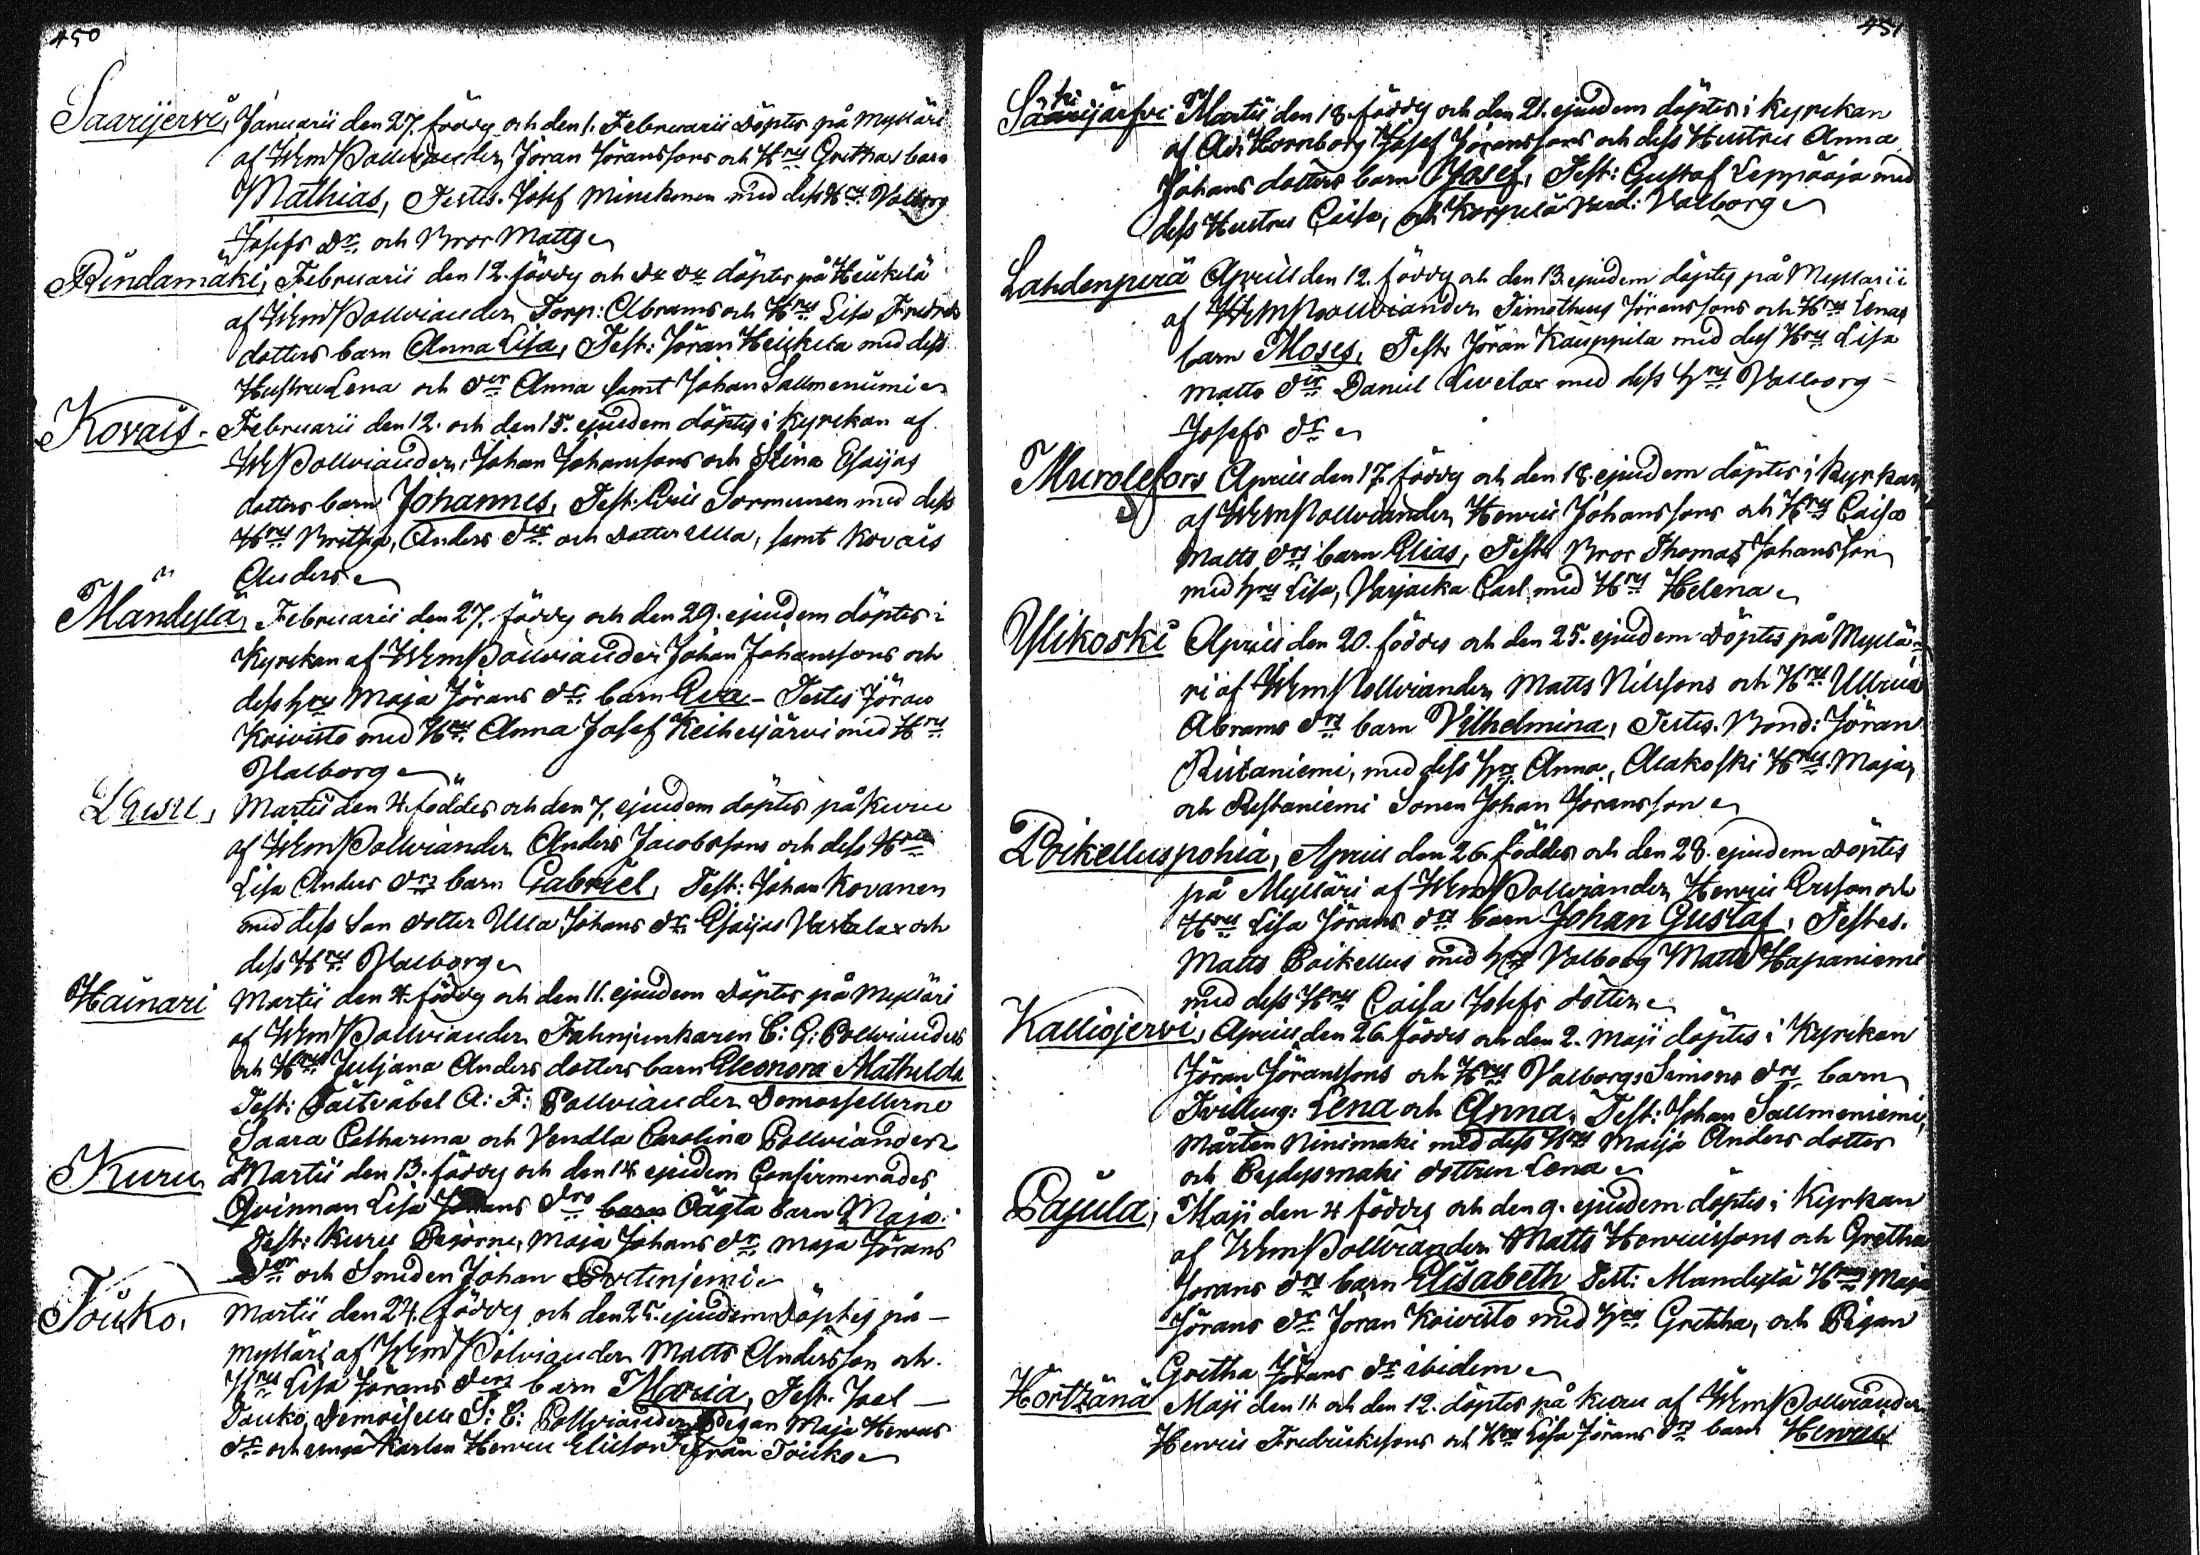 450
Saarijervi, Januarii den 27. föddes och den 1. Februarii Döptes på Mylläri
af WPm Pollviander, Jöran Jöranssons och Hrus Grethas barn
Mathias, Testes. Josef Minckinen med dess Hru Valborg
Josefs Dr. och Bror Matts
Rindamäki, Februarii den 12. föddes och do do döptes på Heikilä
af WPm Pollviander, Torp: Abrams och Hrus Lisa Fredrics
dotters barn Anna Lisa, Test: Jöran Heickila med dess
Hustru Lena och dr Anna samt Johan Sallmenumi
Kovais. Februarii den 12. och den 15. ejusdem döptes i Kyrckan af
WPm Pollviander, Johan Johanssons och Stina Esaijas
dotters barn Johannes, Test: Eric Sormunen med dess
Hru Britha, Anders dr och dotter Ulla, samt Kovais
Anders
Mändylä, Februarii den 27. föddes och den 29. ejusdem döptes i
Kyrckan af WPm Pollviander Johan Johanssons och
dess Hrus Maja Jörans dr barn Eva - Testes Jöran
Koivisto med Hru Anna Josef Keihesjärvi med Hru
Valborg
Lausu, Martii den 4. föddes och den 7. ejusdem döptes på Kuru
af WPm Pollviander Anders Jacobssons och dess Hrus
Lisa Anders drs barn Gabriel, Test: Johan Kovanen
med dess Son dotter Ulla Johans dr. Esaijas Vartalax och
dess Hru Valborg
Hainari Martii den 4. föddes och den 11. ejusdem Döptes på Mylläri
af WPm Pollviander Fahnjunkaren C: G: Pollvianders
och Hrus Juljana Anders dotters barn Eleonora Mathilda
Test: Fältväbel A: F: Pollviander Demoisellerne
Saara Catharina och Vendla Carolina Pollviander
Kuru Martii den 13. föddes och den 14 ejusdem Confirmerades
Qvinnan Lisa Johans drs barn Oägta barn Maja.
Test: Kuru Björne, Maja Johans dr Maja Jörans
dr och Smeden Johan Portinjemi
Touko. Martii den 24. föddes och den 25. ejusdem Döptes på
Mylläri af WPm Pollviander Matts Andersson och
Hrus Lisa Jörans drs barn Maria, Test: Joel
Touko, Demoiselle S: C: Pollviander Pigan Maja Henrics
dr. och unga Karlen Henric Ericson från Touko
451
Saarijärfvi Martii den 18. föddes och den 21. ejusdem döptes i Kyrckan
af Adj: Hornborg Josef Jöranssons och dess Hustrus Anna
Johans dotters barn Josef, Test: Gustaf Leppäoja med
dess Hustru Caisa, och Korpula Vard: Valborg
Lahdenperä Aprill den 12. föddes och den 13. ejusdem döptes på Myllarii
af WPm Pollviander Timotheus Jöranssons och Hrus Lenas
barn Moses, Test: Jöran Kauppila med dess Hru Lisa
Matts dr. Daniel Livelax med dess Hru Valborg
Josefs dr
Murolefors Aprill den 17. föddes och den 18. ejusdem döptes i Kyrkan
af WPm Pollviander Henric Johanssons och Hrus Caisa
Matts drs barn Elias, Test: Bror Thomas Johansson
med Hru Lisa, Varjacka Carl med Hru Helena
Ylikoski Aprill den 20. föddes och den 25. ejusdem Döptes på Myllä-
ri af WPm Pollviander Matts Nilssons och Hrus Ulrica
Abrams drs barn Vilhelmina, Testes. Bond: Jöran
Riutaniemi, med dess Hru Anna, Alakoski Hrus Maja,
och Restaniemi Sonen Johan Joransson
Poikelluspohia, Aprill den 26. föddes och den 28. ejusdem Döptes
på Mylläri af WPm Pollviander Henric Ersson och
Hrus Lisa Jörans drs barn Johan Gustaf, Testes.
Matts Poikellus med Hru Valborg Matts Hapaniemi
med dess Hru Caisa Josefs dotter
Kalliojervi, Aprill den 26. föddes och den 2. Maji döptes i Kyrckan
Jöran Jöranssons och Hrus Valborgs Simons drs barn
Tvilling: Lena och Anna. Test: Johan Sallmeniemi,
Mårten Ninimaki med dess Hru Maija Anders dotter
och Pydysmaki dottren Lena
Pajula, Maji den 4 föddes och den 9. ejusdem döptes i Kyrkan
af WPm Pollviander Matts Henricssons och Gretha
Jorans drs barn Elisabeth Test: Mandylä Hrus Maja
Jörans dr Joran Koivisto med Hru Gretha, och Pigan
Gretha Jörans dr ibidem
Hörtzänä Maji den 11 och den 12. döptes på Kuru af WPm Pollviander
Henric Fredricksons och Hrus Lisa Jörans drs barn Henric